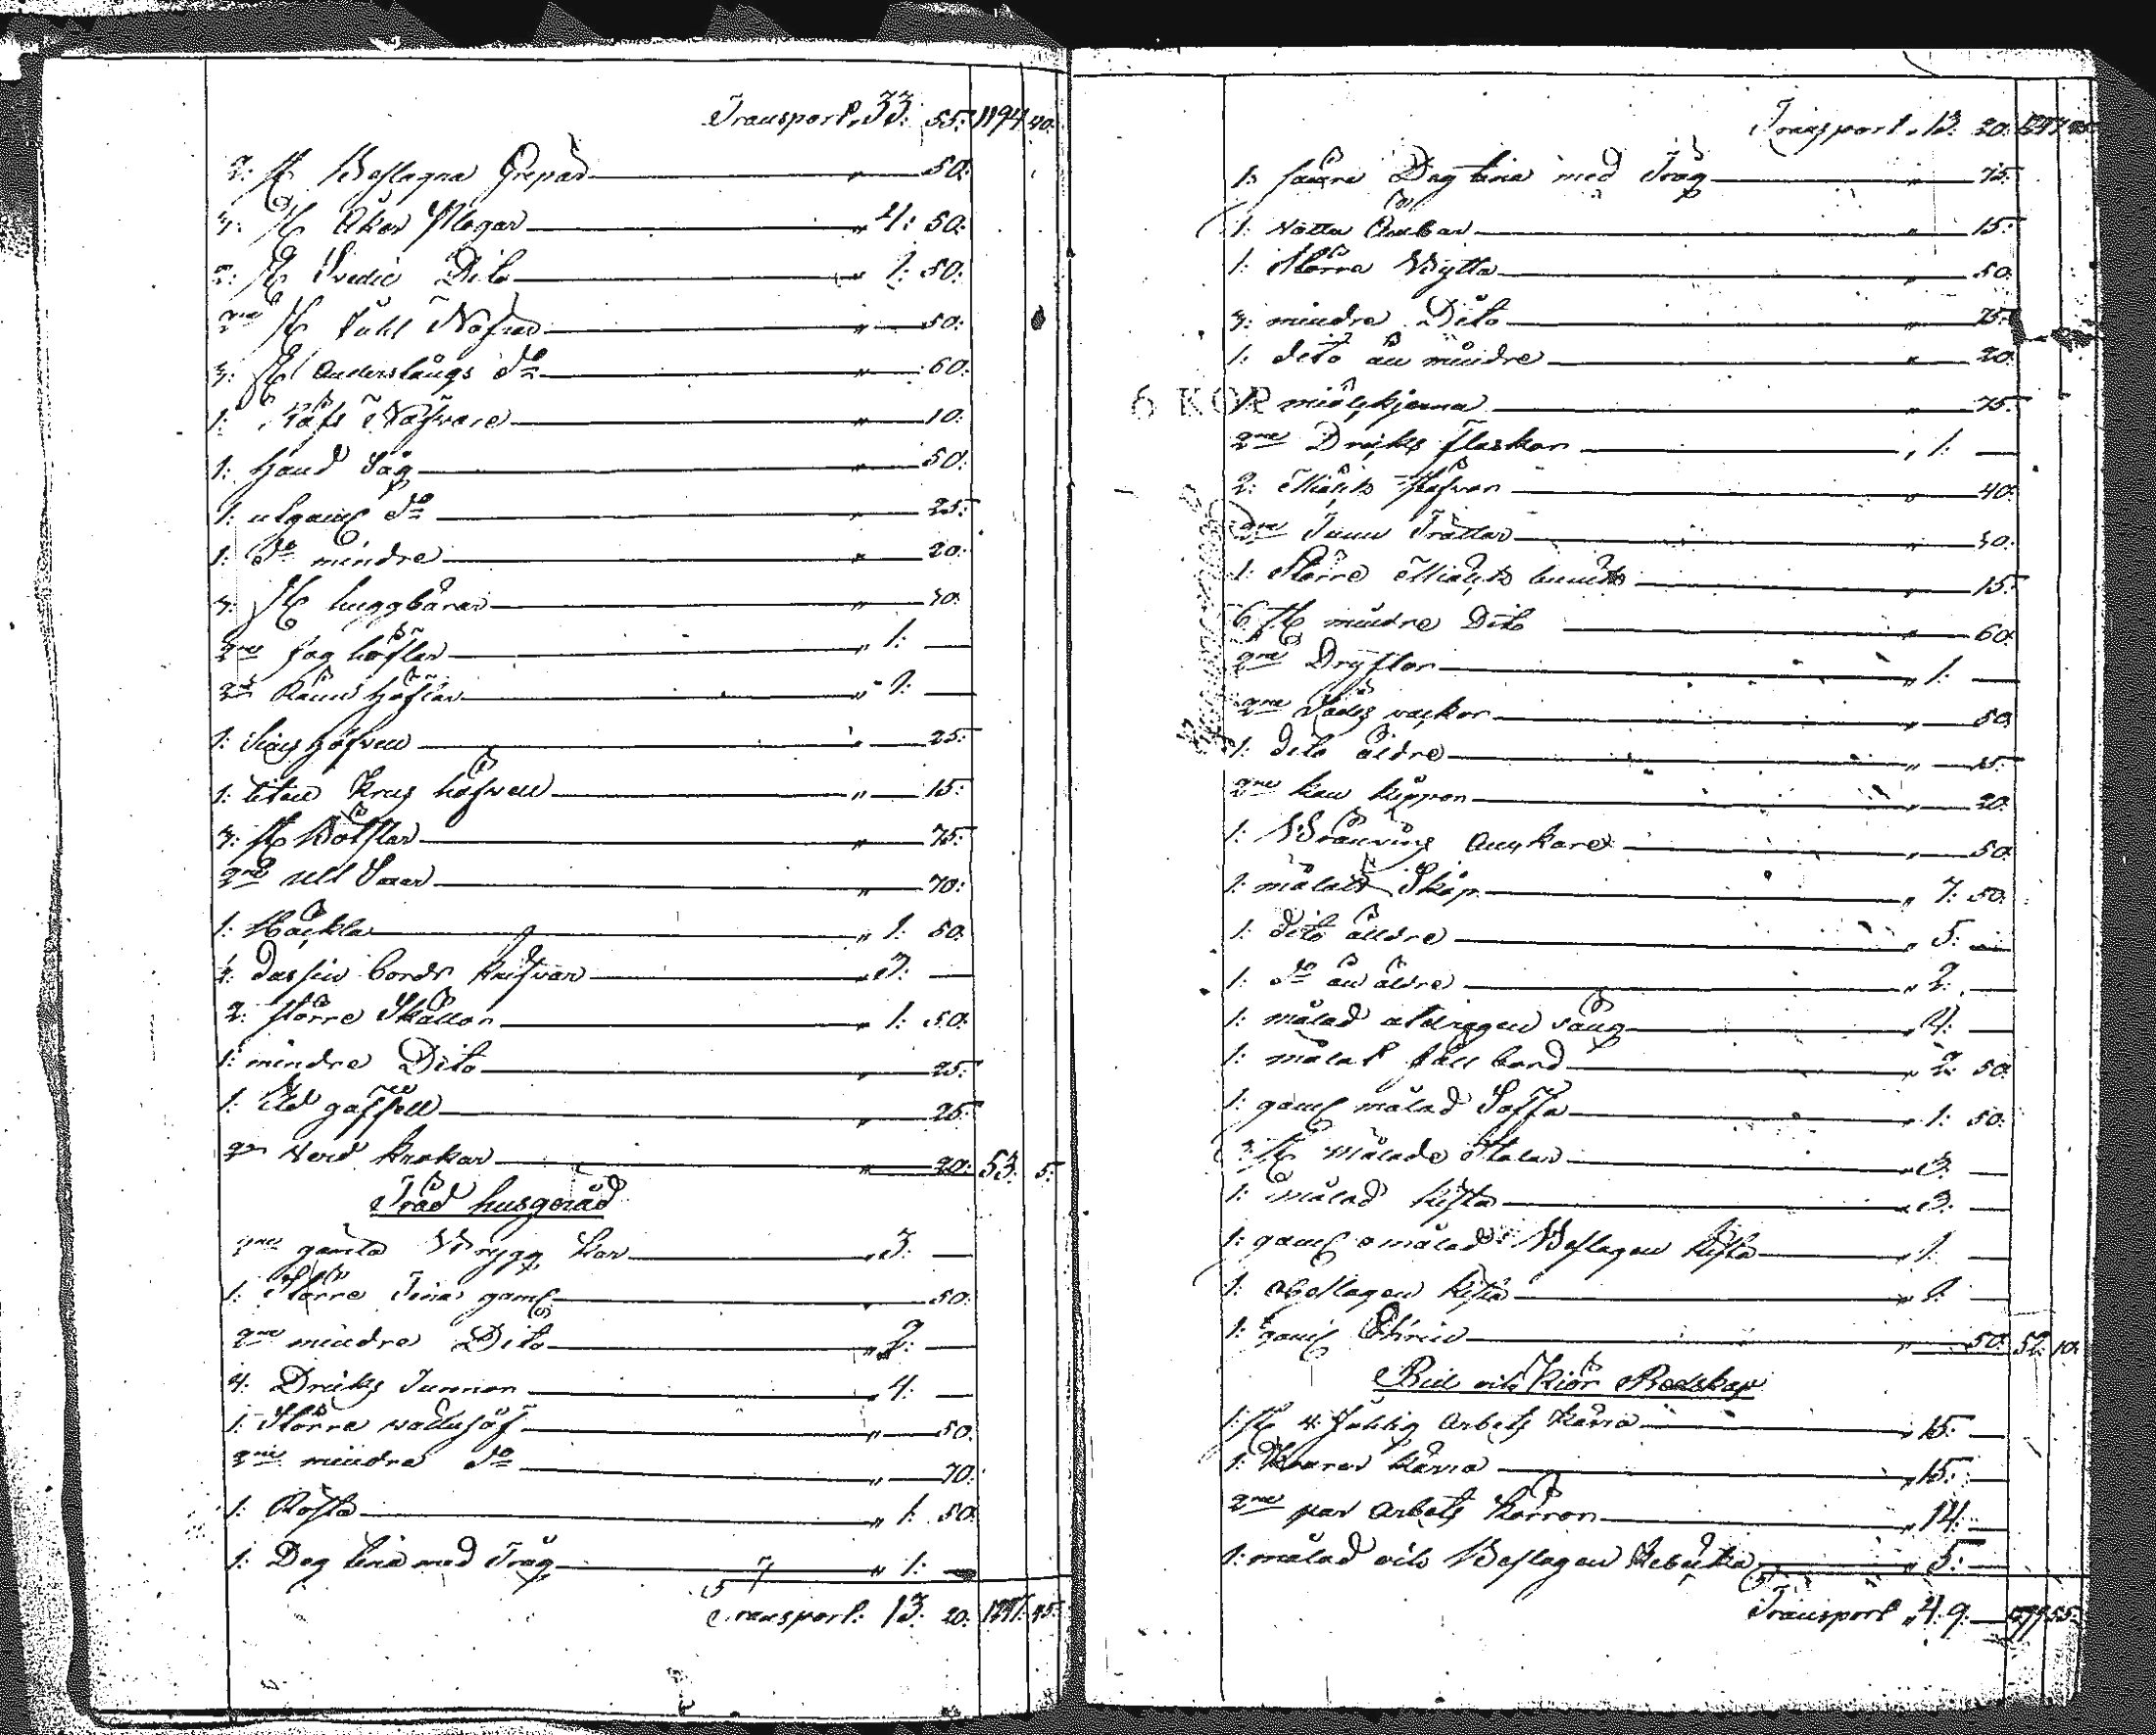 Transport. 33: 55: 1194 40:
2: st Beslagna Grepar " 50:
3: st Åker Plogar " 4: 50:
2: st Svedie Dito " 1: 50:
2ne st Nafrar " 50:
3: st do " 60:
1: Nafvare " 10:
1: hand Såg " 50:
1: do " 25:
1: do mindre " 20:
3: st huggbårar " 30:
2ne fog höflar " 1:
2ne höflar " 1:
1: höfvell " 25:
1: liten Krus höfvell " 15:
3: st " 75:
2ne Ull Saxar " 70:
1: Häckla " 1: 50:
dussin bords knifvar " 3:
2: större Skållor " 1: 50:
1: mindre Dito " 25:
1: Eld gaffell " 25:
2ne krokar " 20: 53: 5:
Träd husgeråd
2ne gamla Brygg kar " 3:
1: Större Tina gaml " 50:
2ne mindre Dito " 2:
4: Dricks Tunnor " 4:
1: Större " 50:
2ne mindre do " 70:
1: " 1: 50:
1: Deg tina med Tråg " 1:
Transport: 13: 20: 1247: 45:
Transport. 13: 20: 1247 45:
1: Deg tina med Tråg " 75:
1: Vatten Ämbar " 15:
1: Större Bytta " 50:
3: mindre Dito " 75:
1: dito än mindre " 20:
1: miölkkjerna " 75:
2ne Dricks flaskor " 1:
2: Miölks " 40:
2ne Tenn Trattar " 30:
1: Större Miölks bunke " 15:
6 st mindre Dito " 60:
2ne Dryftor " 1:
2ne Sädes vackor " 50:
1: dito äldre " 15:
2ne kippor " 20:
1: Bränvins Anckare " 50:
1: målat Skåp " 7: 50:
1: dito älldre " 5:
1: do än äldre " 2:
1: målad säng " 4:
1: målat fäll bord " 2: 50:
1: gaml målad Soffa " 1: 50:
3 st målade Stolar " 3:
1: målad kista " 3.
1: gaml omålad Beslagen kista " 1:
1: obeslagen kista " 1:
1: gaml Skrin " 50: 52: 10:
Rid och Kiör Redskap
1: st 4: Arbets kärra " 15:
1: kärra " 15:
2ne par Arbets Kärror " 14:
1: målad och Beslagen " 5:
Transport " 49: 55: